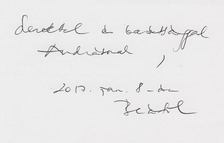 Szeretettel és barátsággal
Andrásnak,
2017. jan. 8-án